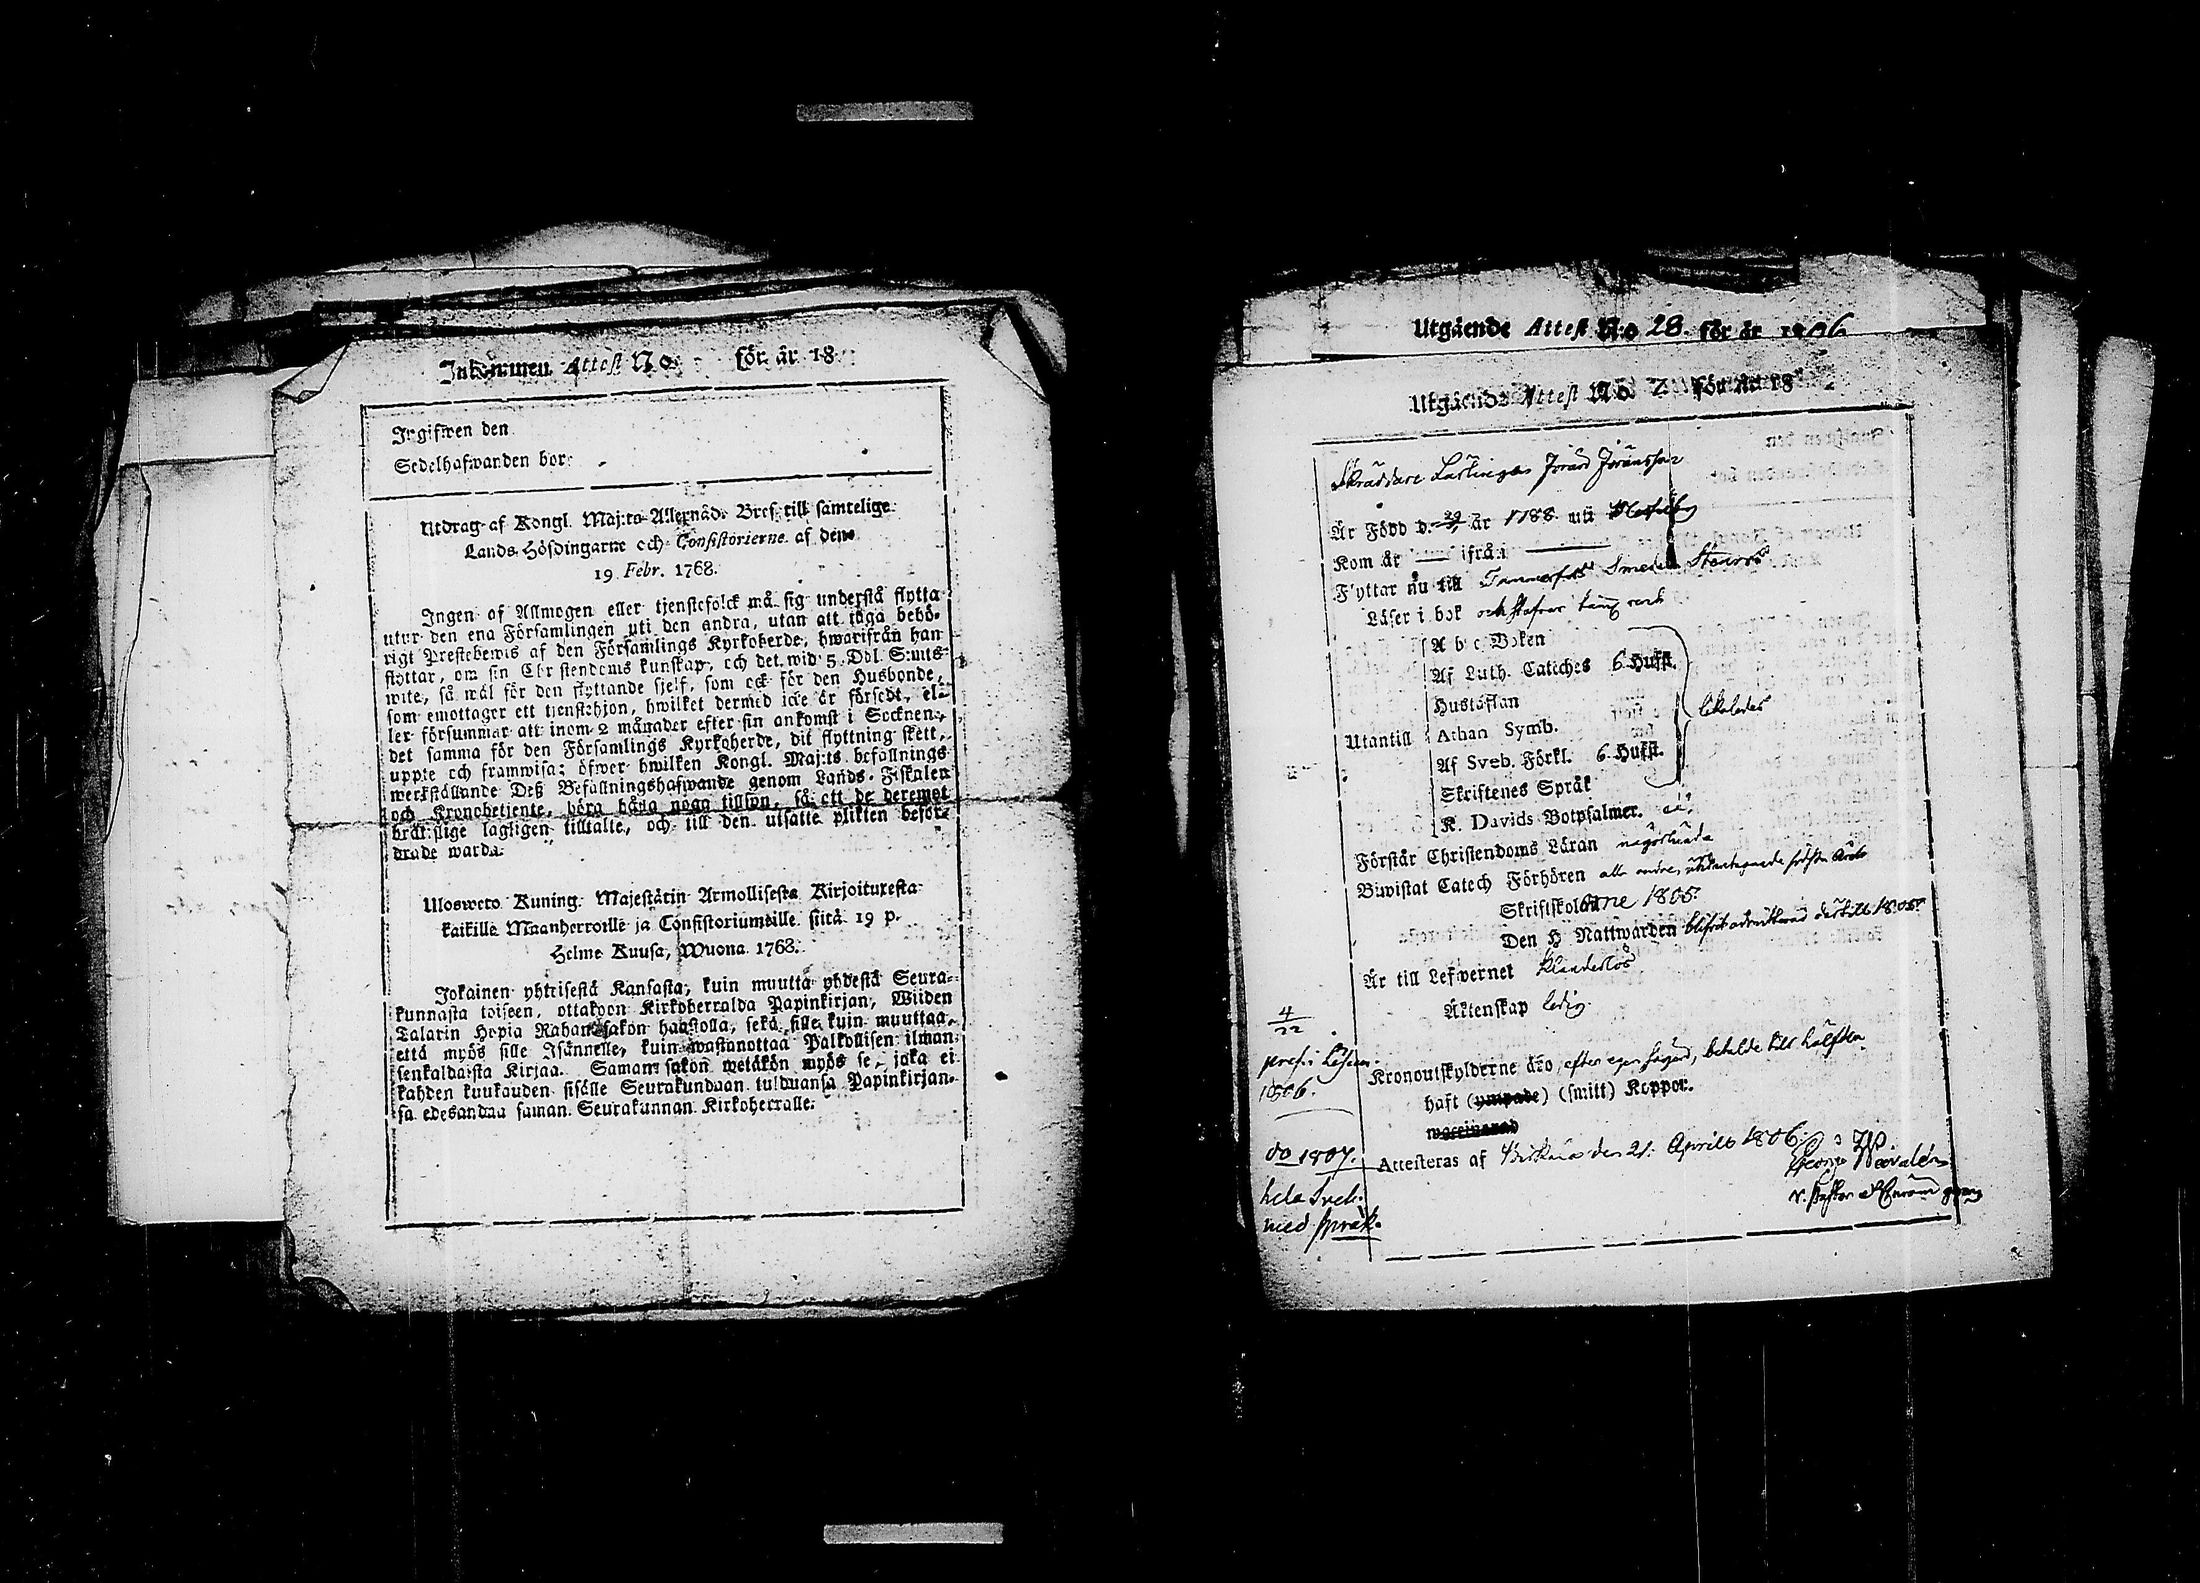 Inkommen Attest No. för år 18
Ingifwen den
Sedelhafwanden bor
Utdrag af Kongl. Maj:ts Allernåd. Bref till samtelige
Lands Höfdingarne och Consistorierne af den
19 Febr. 1768.
Ingen af Allmogen eller tjenstefolck må sig understå flytta
utur den ena Församlingen uti den andra, utan att äga behö-
rigt Prestebewis af den Församlings Kyrkoherde, hwarifrån han
flyttar, om sin Christendoms kunskap, och det wid 5 Dal. S:mts
wite, så wäl för den flyttande sjelf, som ock för den Husbonde,
som emottager ett tjenstehjon, hwilket dermed icke är försedt, el-
ler försummar att inom 2 månader efter sin ankomst i Socknen,
det samma för den Församlings Kyrkoherde, dit flyttning skett,
uppte och framwisa; öfwer hwilken Kongl. Maj:ts befallnings
werkställande Deß Befallningshafwande genom Lands-Fiskalen
och Kronobetjente, böra bära noga tillsyn, så att de deremot
brätslige lagligen tilltalte, och till den utsatte plikten beför-
drade warda.
Ulosweto Kuning. Majestätin Armollisesta Kirjoituxesta
kaikille Maanherroille ja Consistoriumeille siitä 19 p.
Helme Kuusa, Wuona 1768.
Jokainen yhteisestä Kansasta, kuin muuttaa yhdestä Seura-
kunnasta toiseen, ottakoon Kirkoherralda Papinkirjan, Wiiden
Talarin Hopia Rahan sakon haastolla, sekä sille kuin muuttaa,
että myös sille Isännelle, kuin wastanottaa Palkollisen ilman
senkaldaista Kirjaa. Saman sakon wetäkön myös se, joka ei
kahden kuukauden sisälle Seurakundaan tulduansa Papinkirjan-
sa edesandaa saman Seurakunnan Kirkoherralle.
Utgående Attest N:o 28. för år 1806
Utgående Attest No. för år 18
Skräddare Lärlingen Johansson
Är Född d. 29 år 1788 uti
Kom år — ifrån —
Flyttar nu till Tammerfors
Läser i bok och
A b c Boken
Af Luth. Cateches 6 Hufst.
Hustaflan
Utantill Athan Symb.
Af Sveb. Förkl. 6 Hufst.
Skriftenes Språk
K. Davids Botpsalmer. ej
Förstår Christendoms Läran någorlunda
Biwistat Catech Förhören alla
Skriftskolorne 1805.
Den H Nattwarden blifwit admitterad 1805.
Är till Lefwernet klanderlös
Äktenskap ledig.
Kronoutskylderne äro, efter egen betalde till hälften
haft (ympade) (smitt) Koppor.
Attesteras af Birkala den 21. Aprill 1806.
Georg
4/22
1806.
do 1807.
hela
med språk.